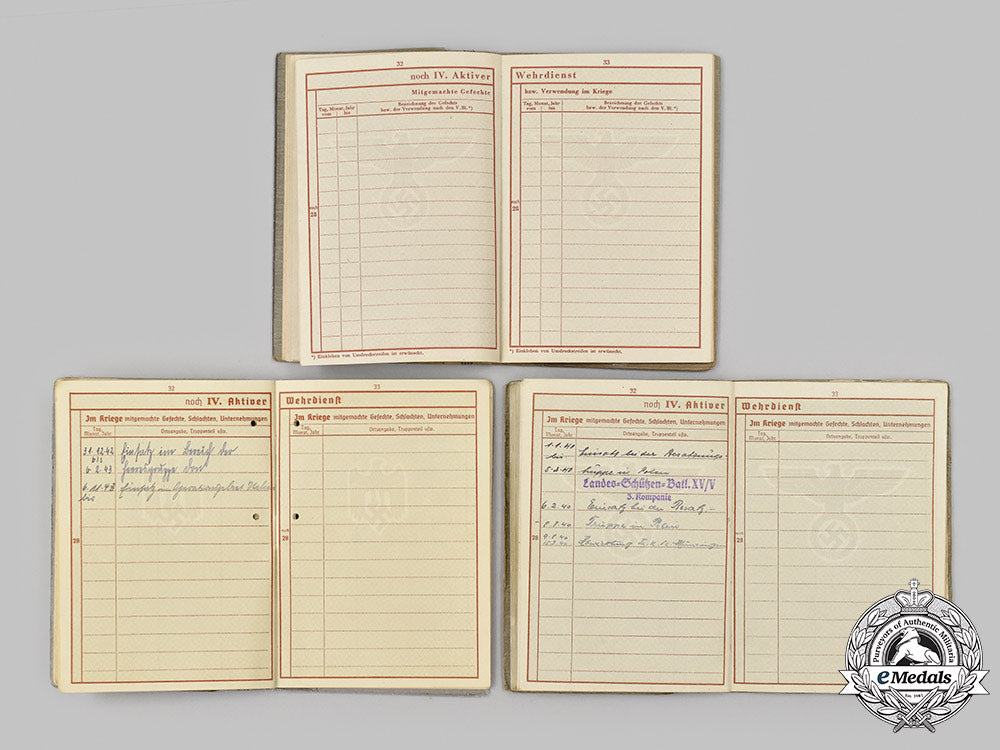 32
noch IV. Aktiver
Mitgemachte Gefechte
Tag, Monat, Jahr
vom bis
Bezeichnung des Gefechts
bzw. der Verwendung nach den V. Bl. *)
noch
28
*) Einkleben von Umdruckstreifen ist erwünscht.
33
Wehrdienst
bzw. Verwendung im Kriege
Tag, Monat, Jahr
vom bis
Bezeichnung des Gefechts
bzw. der Verwendung nach den V. Bl. *)
noch
28
*) Einkleben von Umdruckstreifen ist erwünscht.
32
noch IV. Aktiver
Im Kriege mitgemachte Gefechte, Schlachten, Unternehmungen
Tag, Monat, Jahr
Ortsangabe, Truppenteil usw.
31.12.42 Einsatz im Bereich der
bis
6.2.43 Heeresgruppe Don
6.11.43 Einsatz im
bis
28
33
Wehrdienst
Im Kriege mitgemachte Gefechte, Schlachten, Unternehmungen
Tag, Monat, Jahr
Ortsangabe, Truppenteil usw.
noch
28
32
noch IV. Aktiver
Im Kriege mitgemachte Gefechte, Schlachten, Unternehmungen
Tag, Monat, Jahr
Ortsangabe, Truppenteil usw.
1.1.40
bis Einsatz bei der Besatzungs-
5.2.40 truppe in Polen
Landes-Schützen-Batl. XV/V
3. Kompanie
6.2.40 Einsatz bei der Besatz-
- 8.8.40 Truppe in Polen
9.8.40
28
33
Wehrdienst
Im Kriege mitgemachte Gefechte, Schlachten, Unternehmungen
Tag, Monat, Jahr
Ortsangabe, Truppenteil usw.
noch
28
Purveyors of Authentic Militaria
eMedals